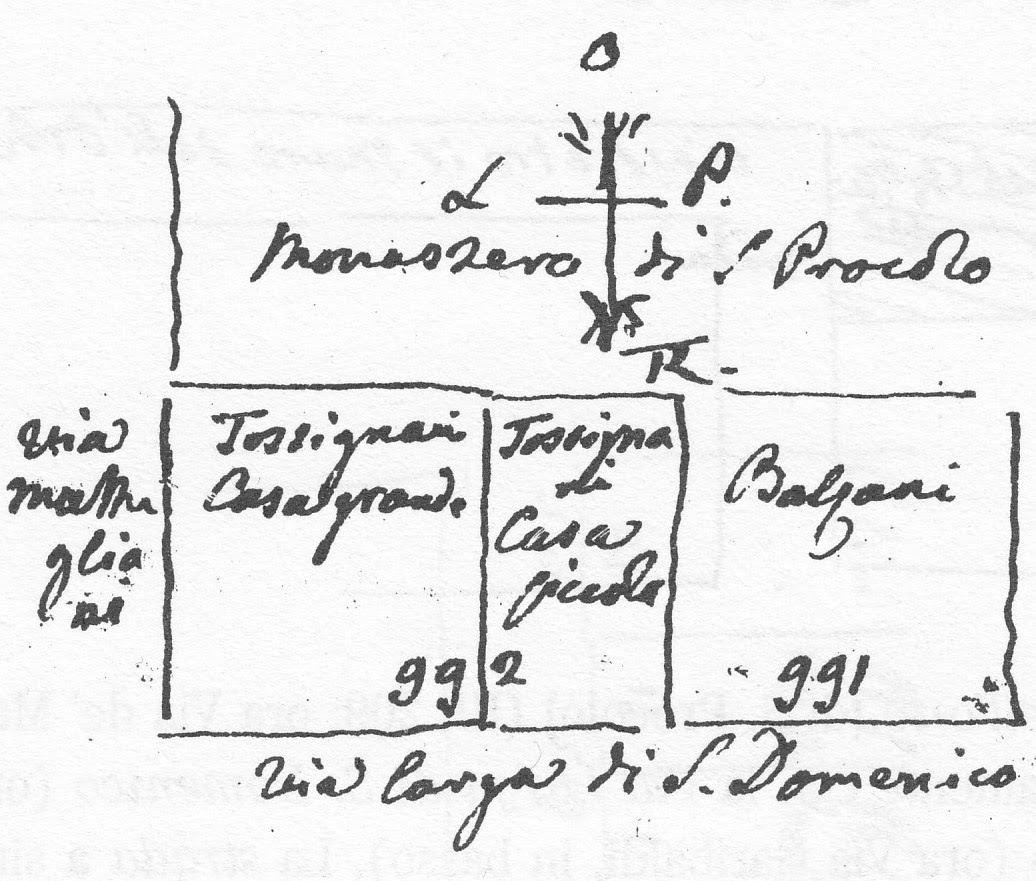 O
L P.
Monastero di S Procolo
R.
via
Mattu
glia
ni
Tossignani
Casa grande
Tossigna
ni
Casa
piccola
Balzani
992
991
via larga di S. Domenico